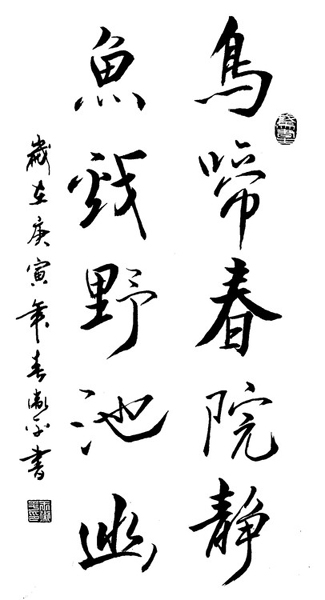 鳥啼春院静
魚戲野池幽
歲在庚寅年春書